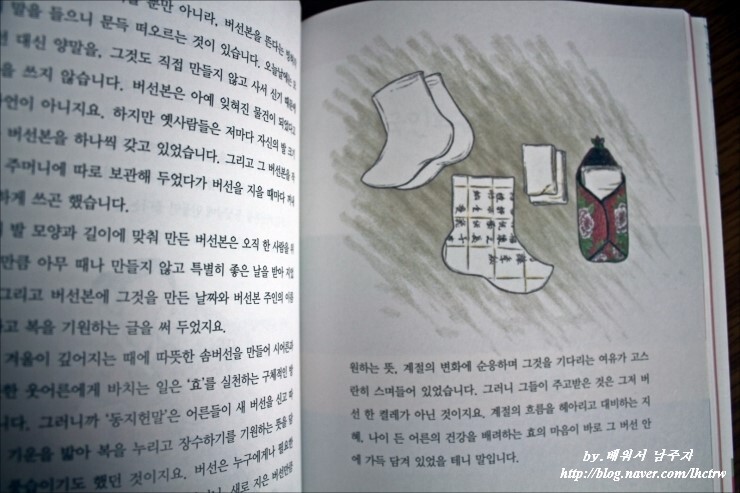 뿐만 아니라, 버선본을 뜬다는
말을 들으니 문득 떠오르는 것이 있습니다. 오늘날에는
대신 양말을, 그것도 직접 만들지 않고 사서 신기 때문에
을 쓰지 않습니다. 버선본은 아예 잊혀진 물건이 되었다고
과언이 아니지요. 하지만 옛사람들은 저마다 자신의 발 크기
버선본을 하나씩 갖고 있었습니다. 그리고 그 버선본을
주머니에 따로 보관해 두었다가 버선을 지을 때마다
하게 쓰곤 했습니다.
발 모양과 길이에 맞춰 만든 버선본은 오직 한 사람을 위
만큼 아무 때나 만들지 않고 특별히 좋은 날을 받아
그리고 버선본에 그것을 만든 날짜와 버선본 주인의 이름
고 복을 기원하는 글을 써 두었지요.
겨울이 깊어지는 때에 따뜻한 솜버선을 만들어 시어른과
한 웃어른에게 바치는 일은 '효'를 실천하는 구체적인 방
니다. 그러니까 '동지헌말'은 어른들이 새 버선을 신고 따
기운을 밟아 복을 누리고 장수하기를 기원하는 뜻을 담
풍습이기도 했던 것이지요. 버선은 누구에게나 필요한
새로 지은
원하는 뜻, 계절의 변화에 순응하며 그것을 기다리는 여유가 고스
란히 스며들어 있었습니다. 그러니 그들이 주고받은 것은 그저 버
선 한 켤레가 아닌 것이지요. 계절의 흐름을 헤아리고 대비하는 지
혜, 나이 든 어른의 건강을 배려하는 효의 마음이 바로 그 버선 안
에 가득 담겨 있었을 테니 말입니다.
by.배워서 남주자
http://blog.naver.com/lhctrw